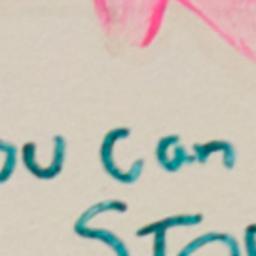 ou can
STO